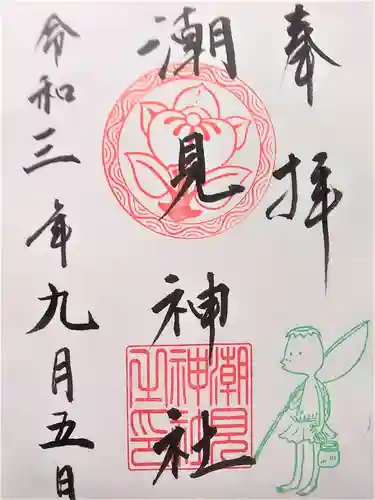 奉拝
潮見神社
潮見
神社
之印
令和三年九月五日